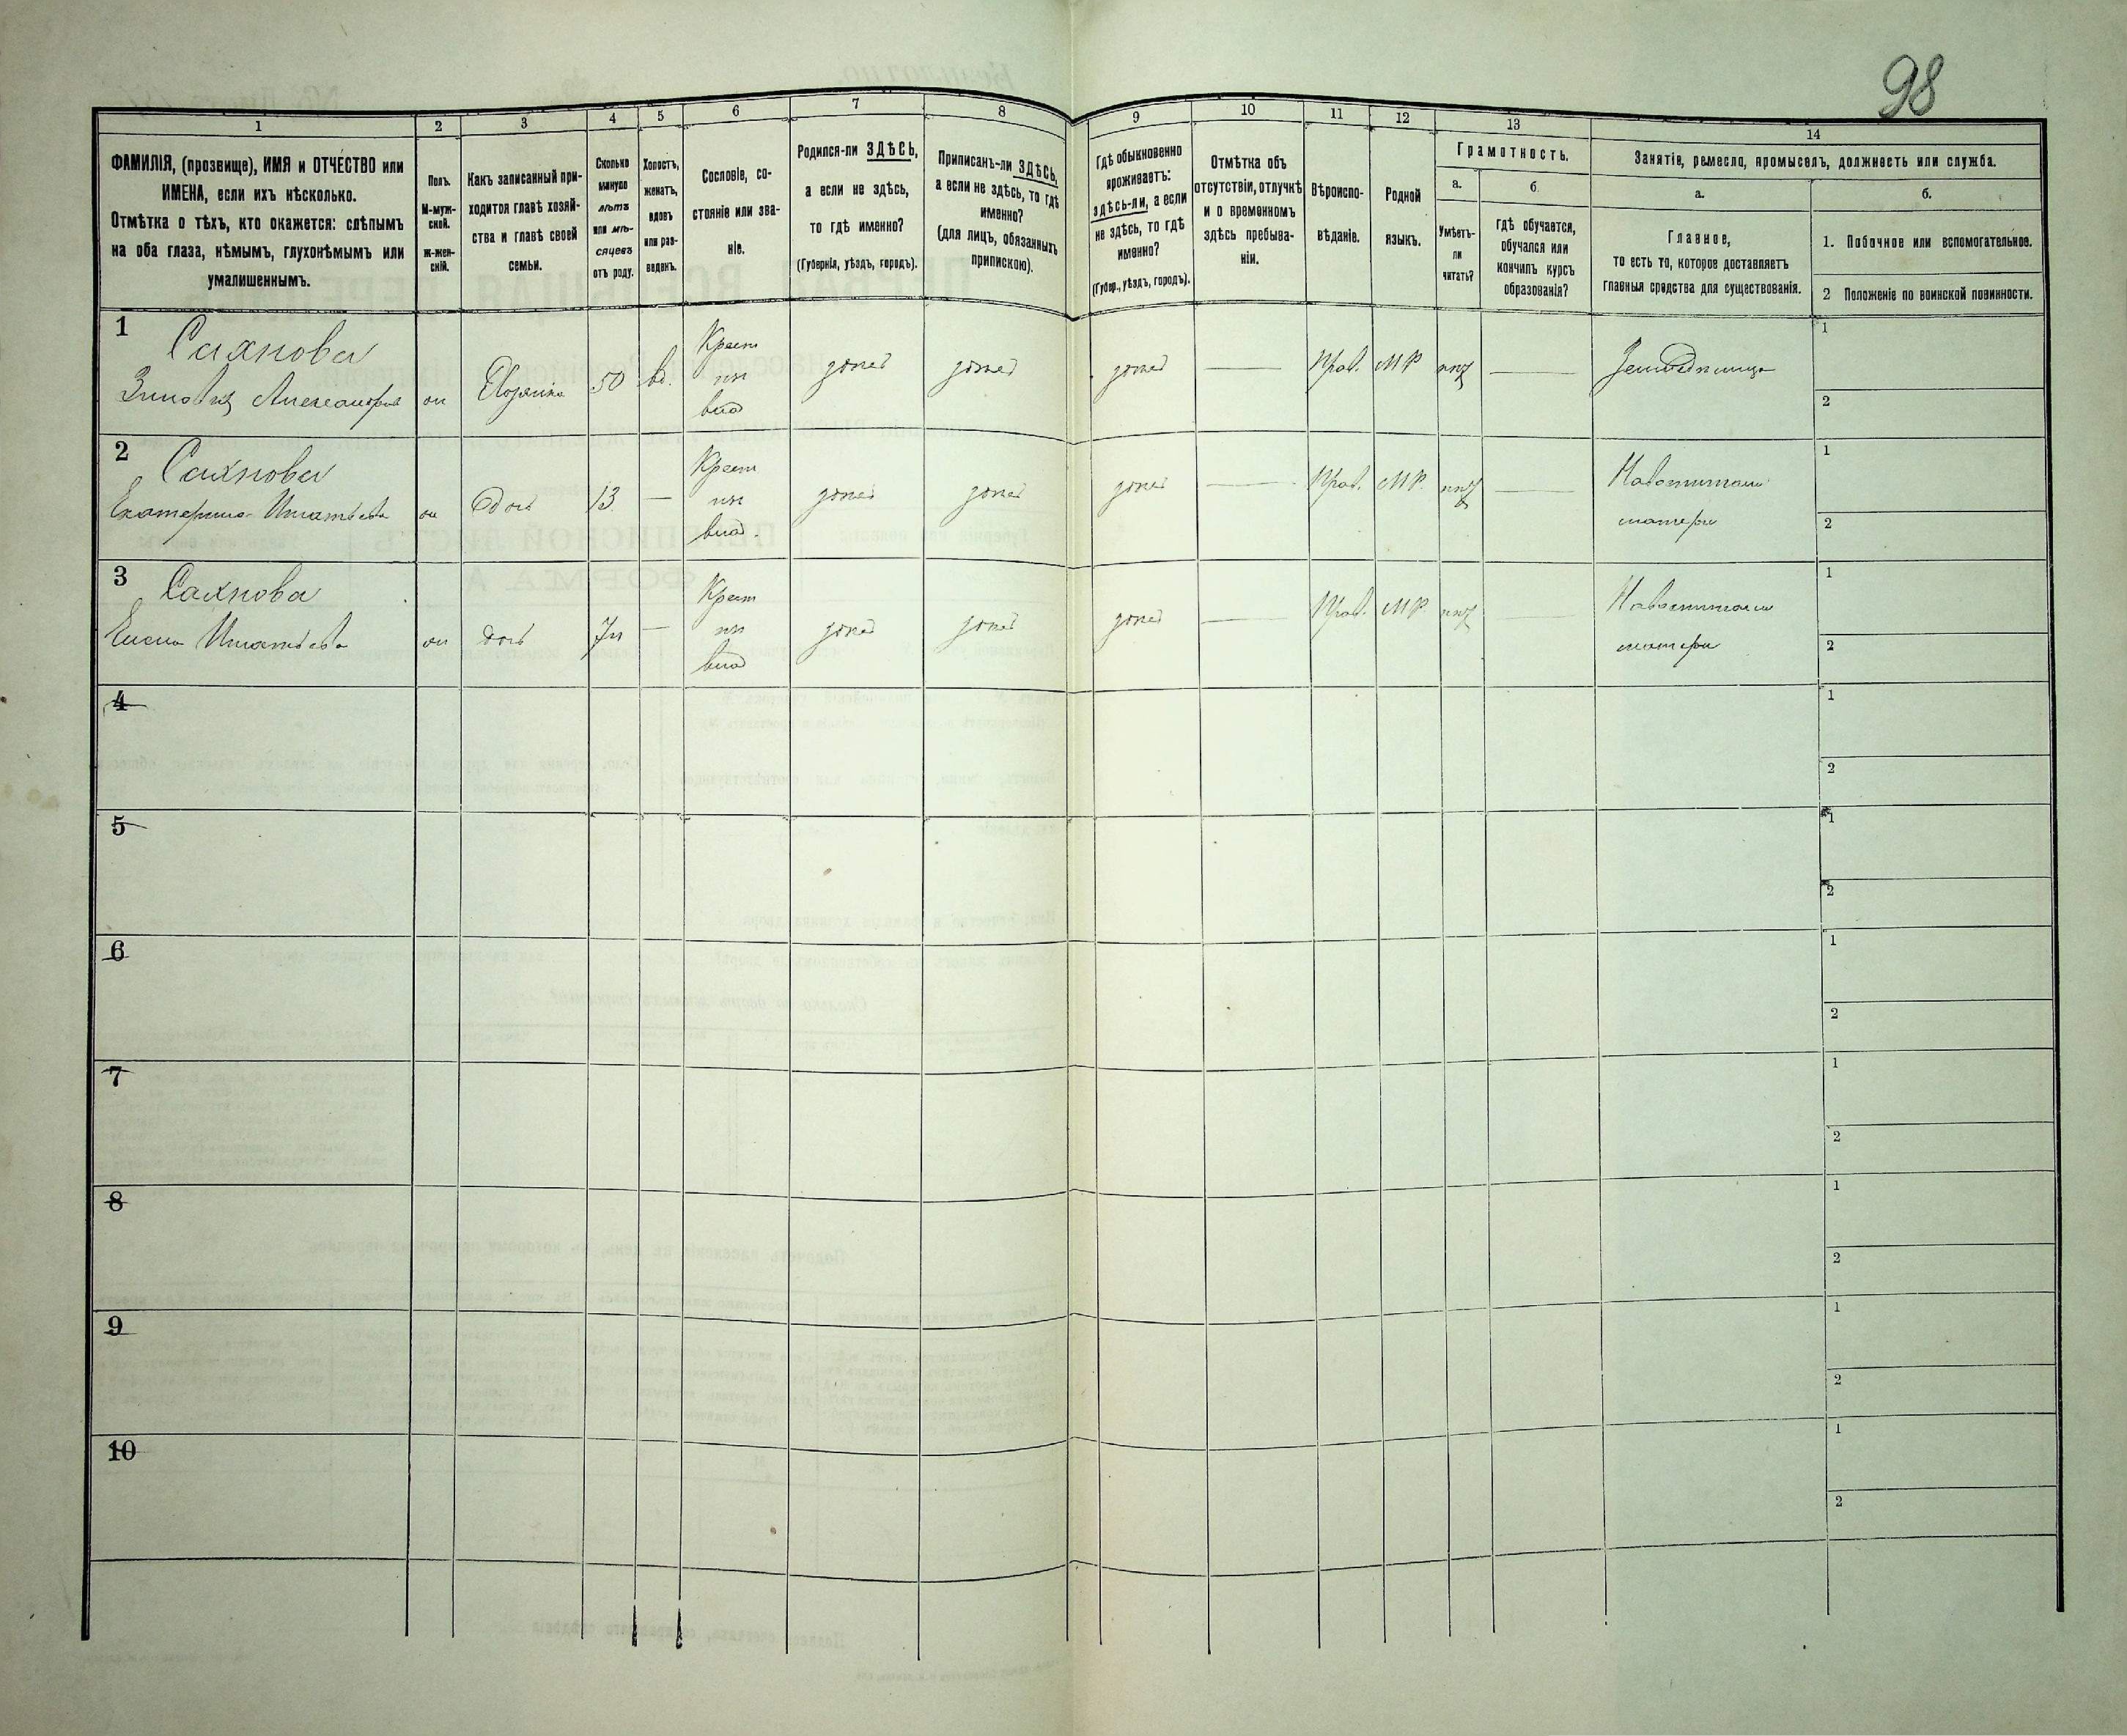 98
1 2 3 4 5 6 7 8 9 10 11 12 13 14
ФАМИЛІЯ, (прозвище), ИМЯ и ОТЧЕСТВО или
ИМЕНА, если ихъ нѣсколько.
Отмѣтка о тѣхъ, кто окажется: слѣпымъ
на оба глаза, нѣмымъ, глухонѣмымъ или
умалишеннымъ.
Полъ.
М-муж-
ской.
ж-жен-
скій.
Какъ записанный при-
ходится главѣ хозяй-
ства и главѣ своей
семьи.
Сколько
минуло
лѣтъ
или мѣ-
сяцевъ
отъ роду.
Холостъ,
женатъ,
вдовъ
или раз-
веденъ.
Сословіе, со-
стояніе или зва-
ніе.
Родился-ли ЗДѢСЬ,
а если не здѣсь,
то гдѣ именно?
(Губернія, уѣздъ, городъ).
Приписанъ-ли ЗДѢСЬ,
а если не здѣсь, то гдѣ
именно?
(для лицъ, обязанныхъ
припискою).
Гдѣ обыкновенно
проживаетъ:
здѣсь-ли, а если
не здѣсь, то гдѣ
именно?
(Губер., уѣздъ, городъ).
Отмѣтка объ
отсутствіи, отлучкѣ
и о временномъ
здѣсь пребыва-
ніи.
Вѣроиспо-
вѣданіе.
Родной
языкъ.
Грамотность.
а.
Умѣетъ-
ли
читать?
б.
Гдѣ обучается,
обучался или
кончилъ курсъ
образованія?
Занятіе, ремесло, промыселъ, должность или служба.
а.
Главное,
то есть то, которое доставляетъ
главныя средства для существованія.
б.
1. Побочное или вспомогательное.
2 Положеніе по воинской повинности.
1
Сахнова
Александров
Хозяйка
50
вд.
Крест
влад
здѣсь
здѣсь
здѣсь
Прав.
МР
нѣт
1
2
2
Сахнова
Екатерина Игнатьева
дочь
13
—
Крест
влад.
здѣсь
здѣсь
здѣсь
Прав.
МР.
нѣт
матери
1
2
3
Сахнова
Елена Игнатьева
дочь
—
Крест
влад
здѣсь
здѣсь
здѣсь
Прав.
МР.
нѣт
матери
1
2
4
1
2
5
1
2
6
1
2
7
1
2
8
1
2
9
1
2
10
1
2